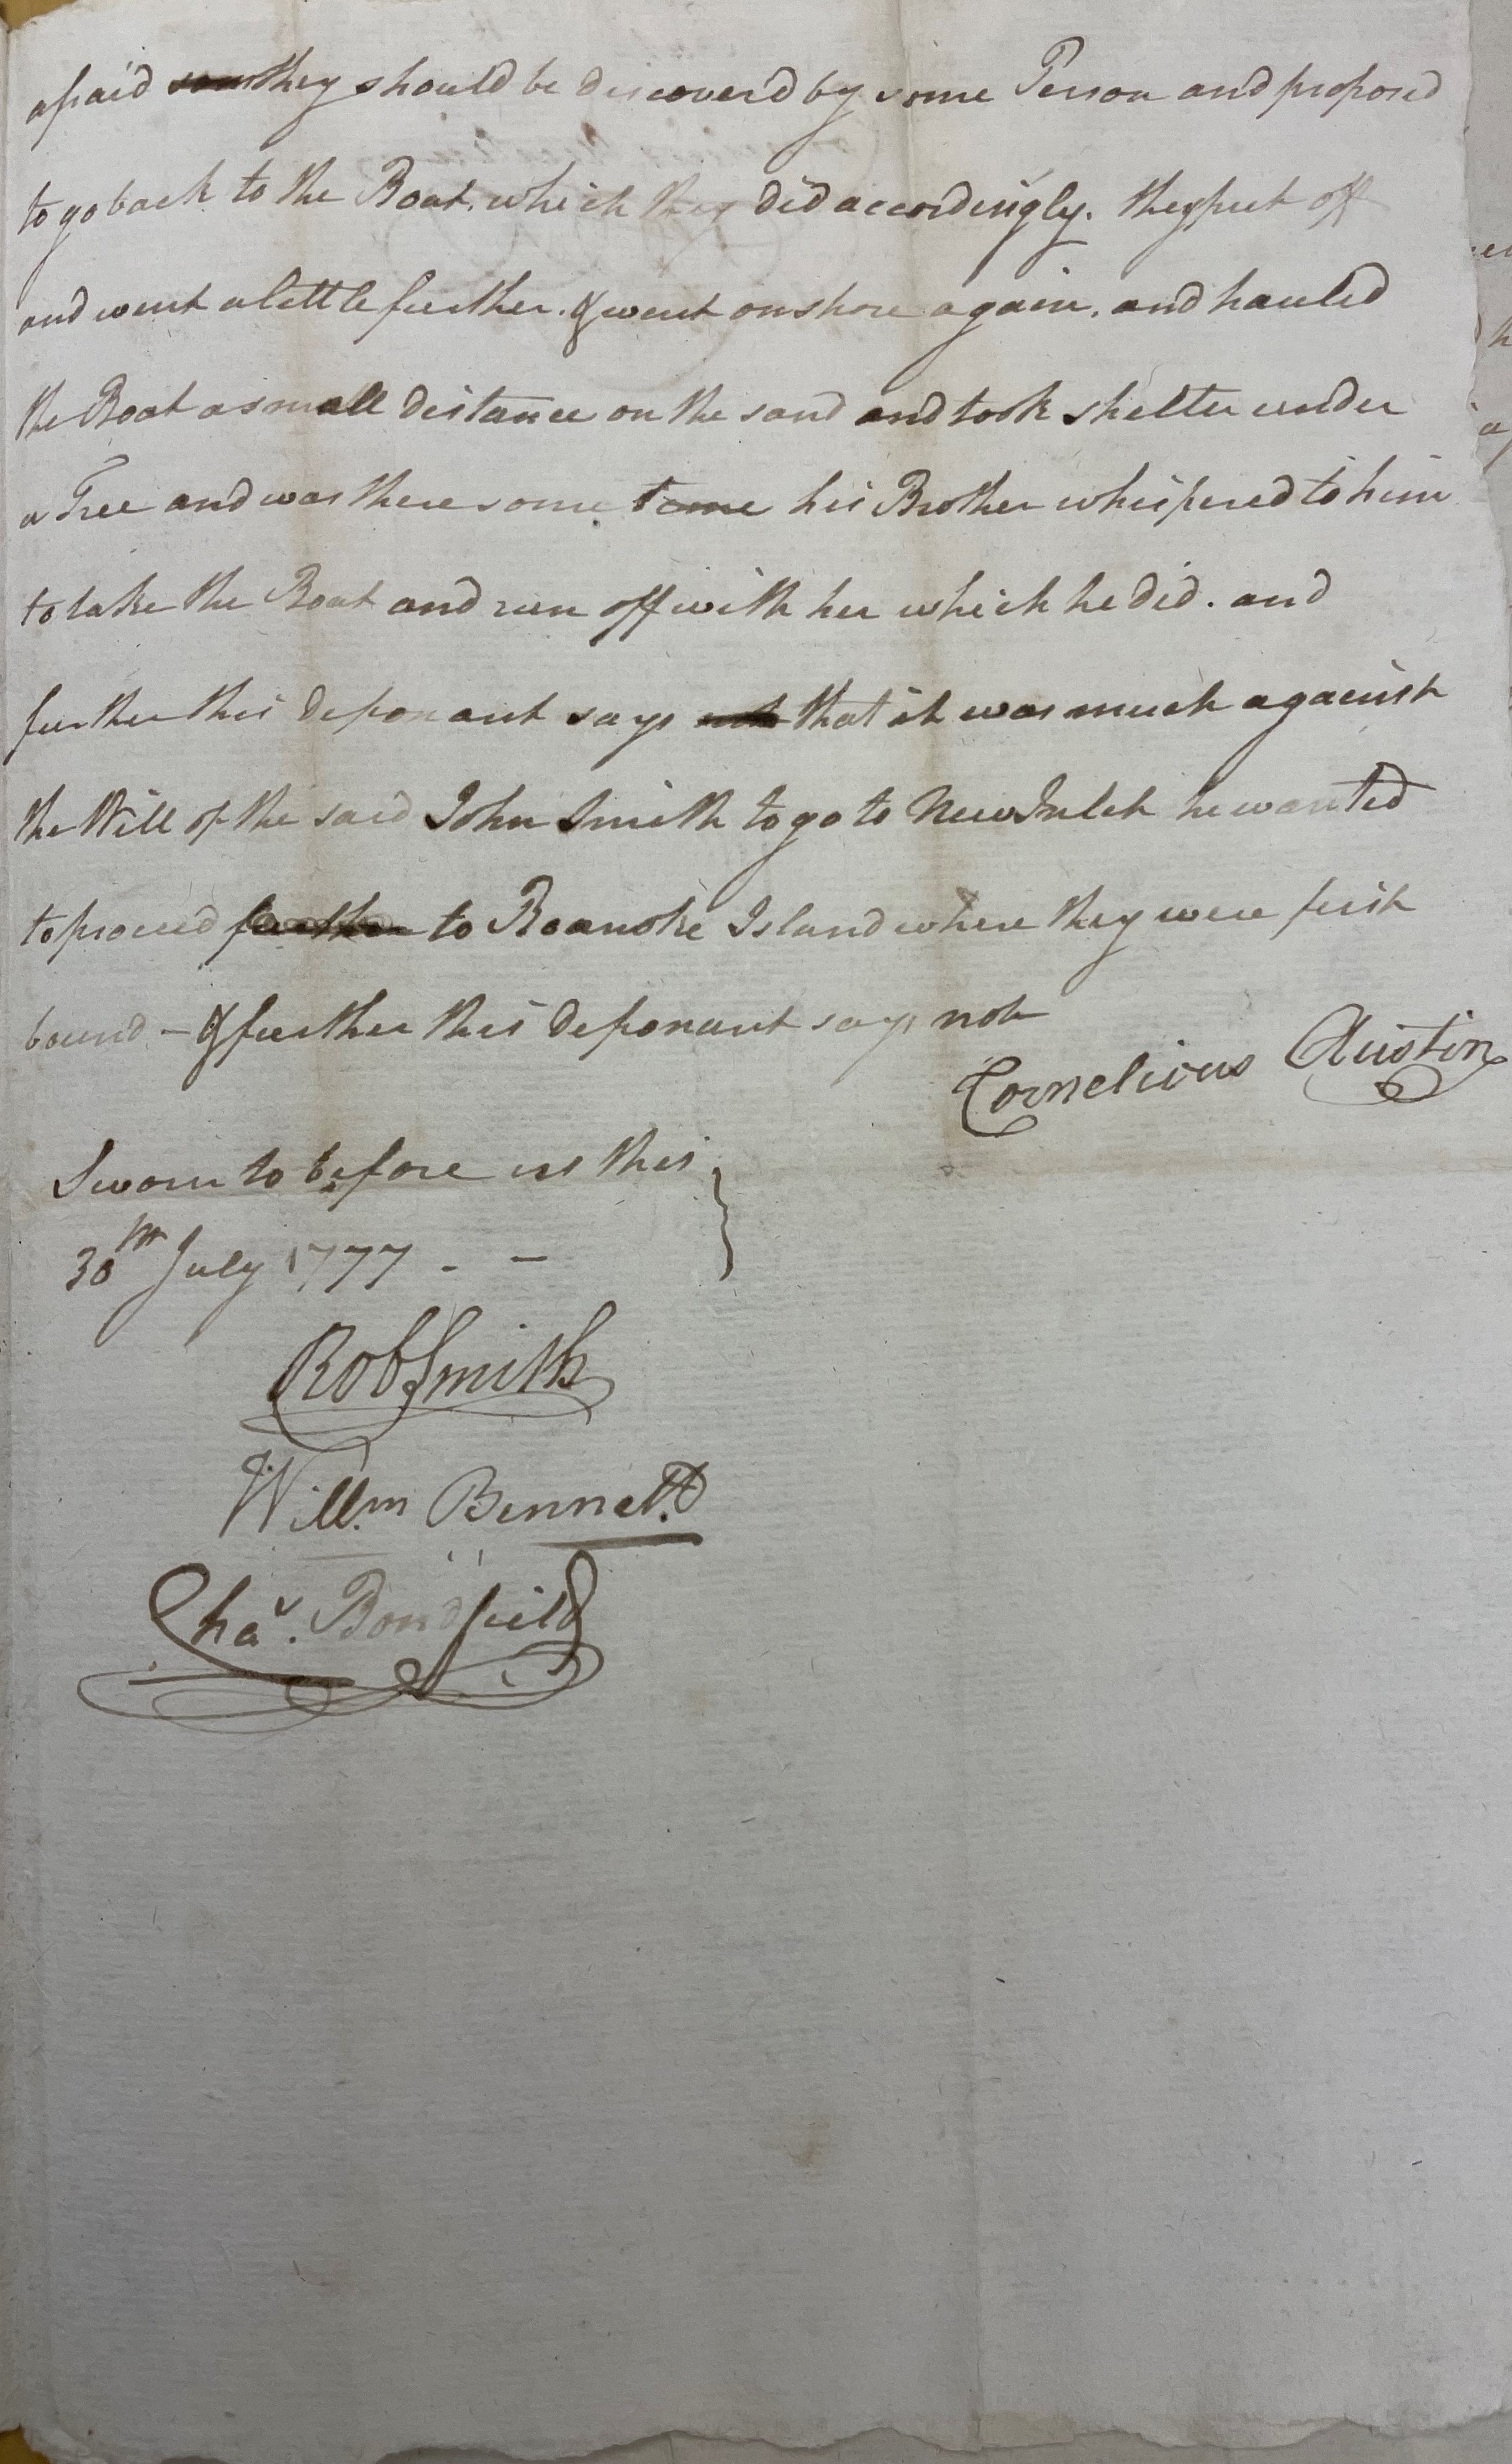 afraid some they should be discoverd by some Person and proposed
to go back to the Boat. which they did accordingly. they put off
and went a little further. & went on shore again. and hauled
the Boat a small distance on the sand and took shelter under
a Tree and was there some time his Brother whispered to him
to take the Boat and run off with her which he did. and
further this deponant says that it was much against
the Will of the said John Smith to go to New Inlet he wanted
to proceed further to Roanoke Island where they were first
bound – & further this deponant says not
Cornelious Austin
Sworn to before us this
30th July 1777 - -
Rob Smith
Will.m Bennett
Chas. Bondfield